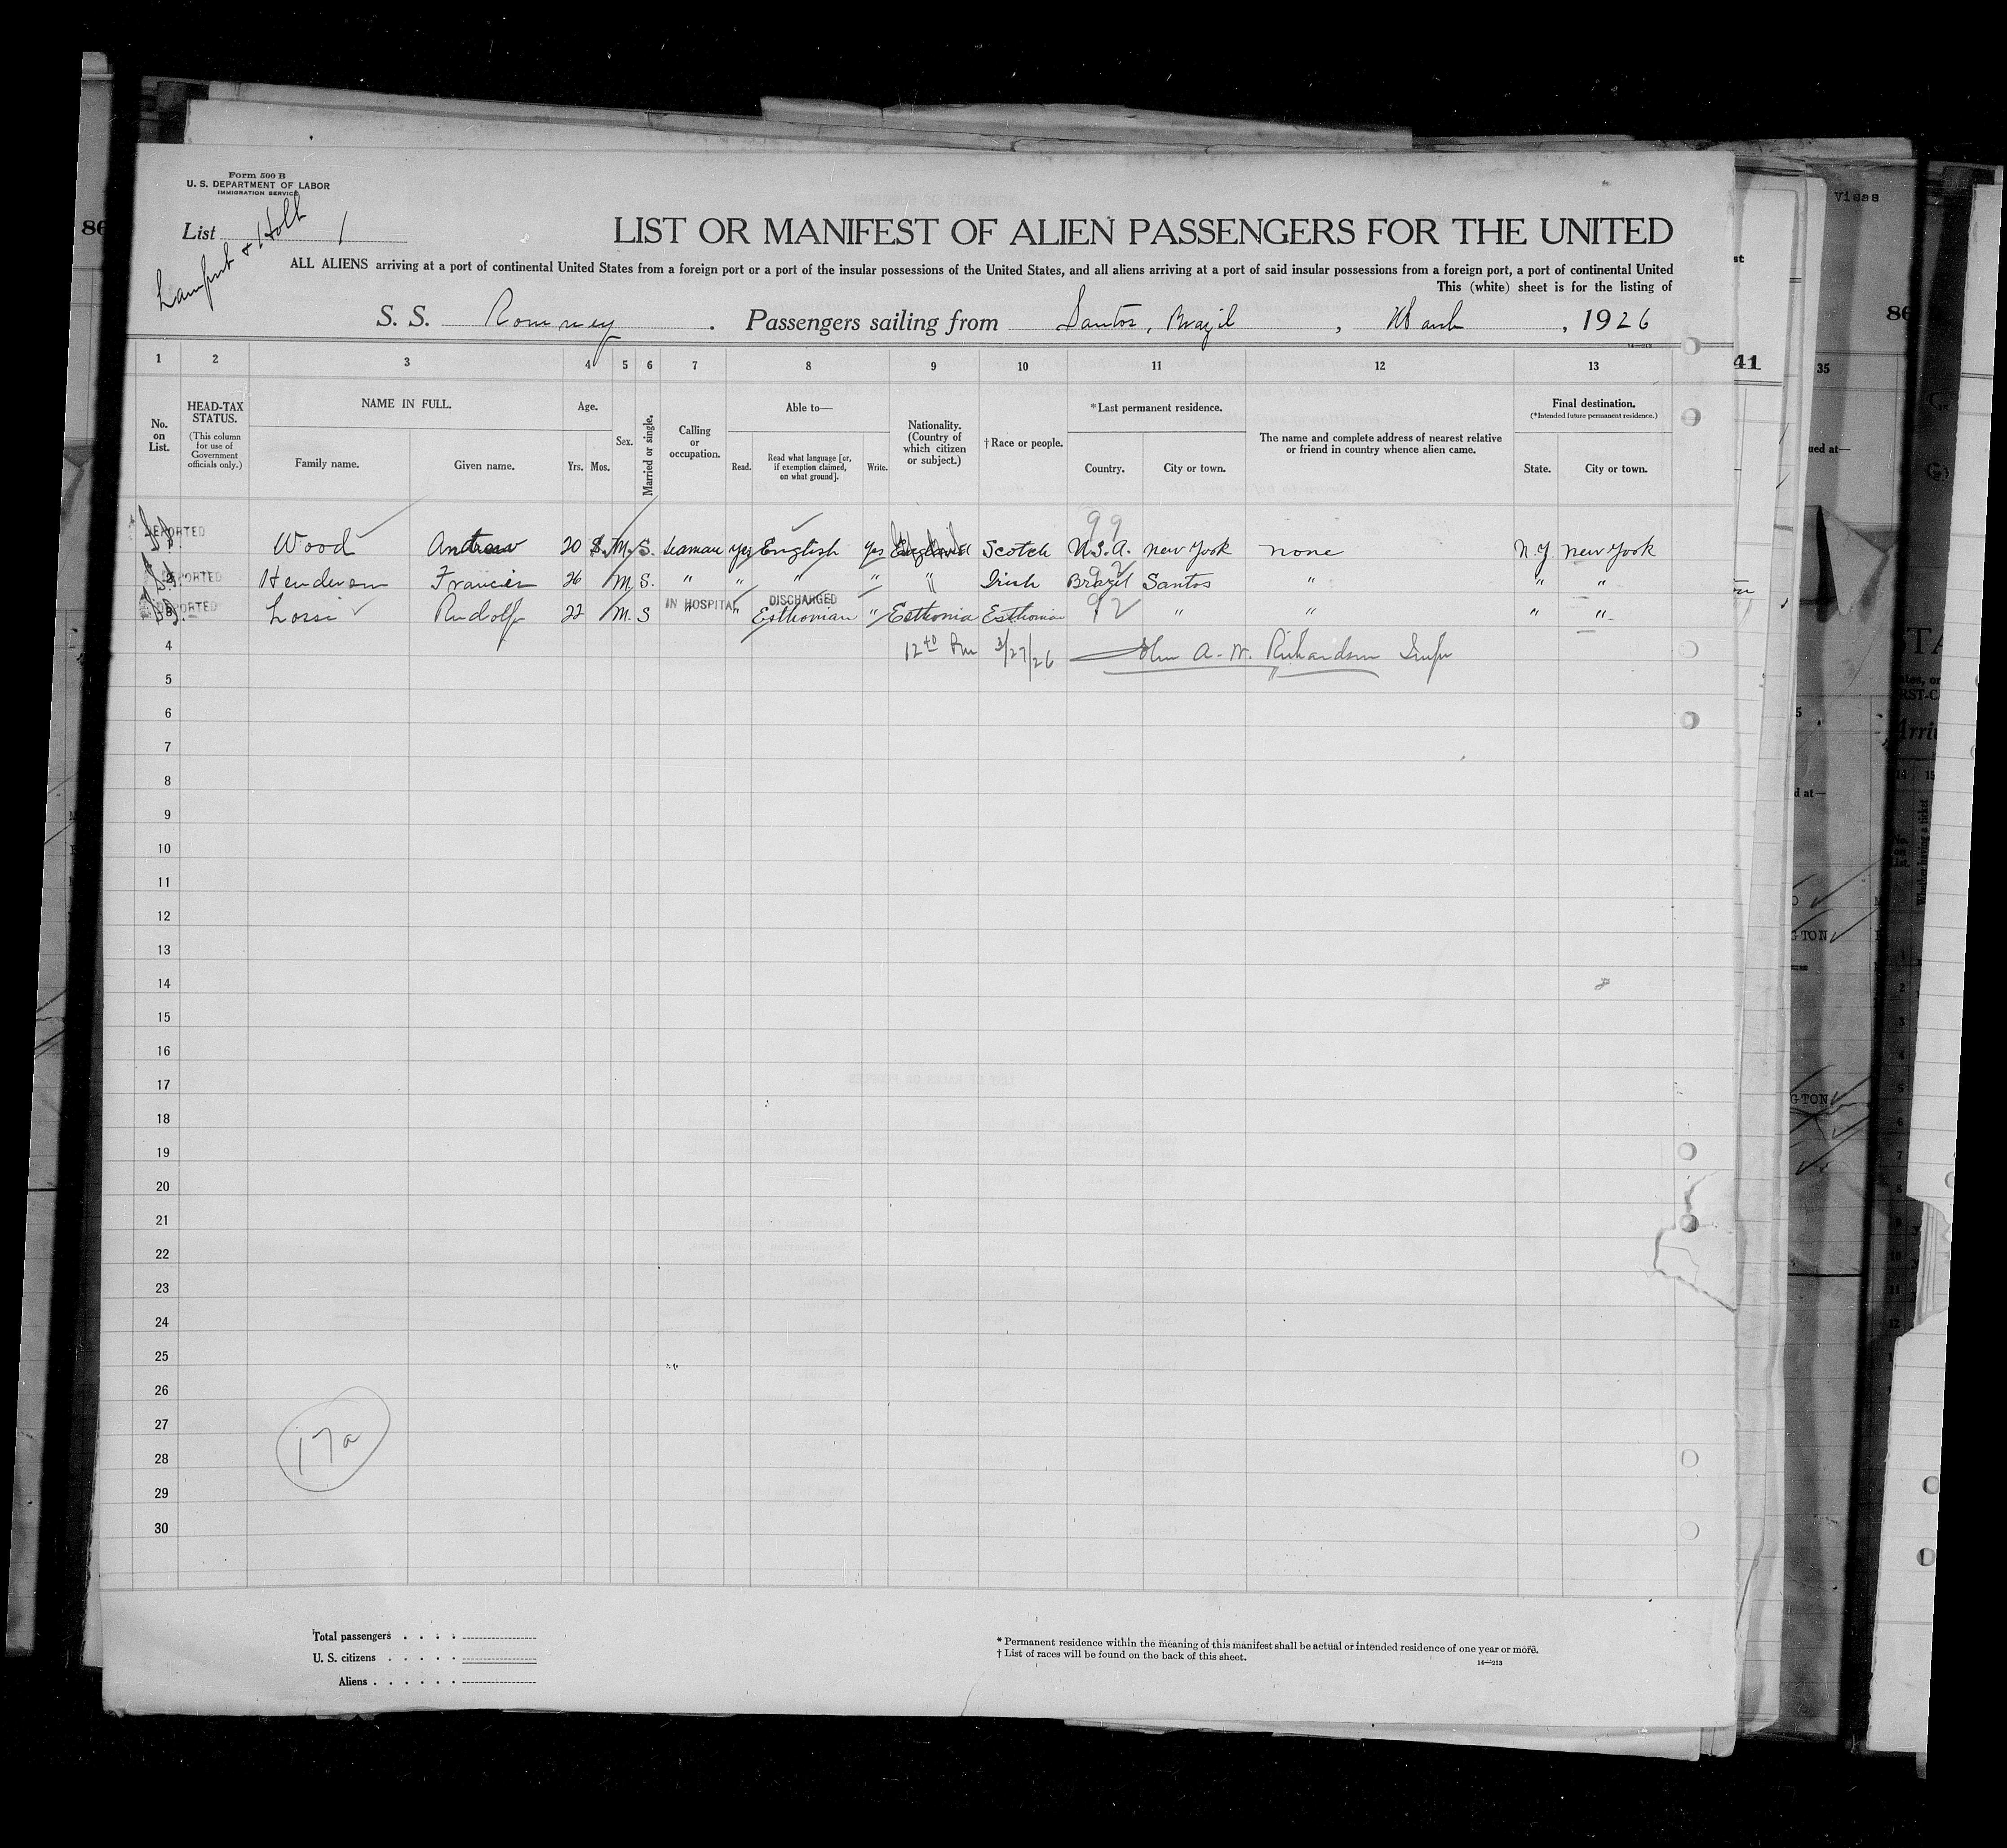 Form 500 B
U. S. DEPARTMENT OF LABOR
IMMIGRATION SERVICE
List 1
Lamport & Holt
LIST OR MANIFEST OF ALIEN PASSENGERS FOR THE UNITED
ALL ALIENS arriving at a port of continental United States from a foreign port or a port of the insular possessions of the United States, and all aliens arriving at a port of said insular possessions from a foreign port, a port of continental United
This (white) sheet is for the listing of
S. S. Romney . Passengers sailing from Santos, Brazil , March , 1926
14—213
1 2 3 4 5 6 7 8 9 10 11 12 13
No. on List.
HEAD-TAX STATUS.
(This column for use of Government officials only.)
NAME IN FULL.
Family name. Given name.
Age.
Yrs. Mos.
Sex.
Married or single.
Calling or occupation.
Able to—
Read. Read what language [or, if exemption claimed, on what ground]. Write.
Nationality. (Country of which citizen or subject.)
† Race or people.
* Last permanent residence.
Country. City or town.
The name and complete address of nearest relative or friend in country whence alien came.
Final destination.
(* Intended future permanent residence.)
State. City or town.
99
DEPORTED Wood Andrew 20 M. S. Seaman yes English yes England Scotch U.S.A. New York none N.Y New York
DEPORTED Henderson Francis 26 M S. " " " " " Irish Brazil Santos " " "
IN HOSPITAL DISCHARGED
DEPORTED Lossi Rudolf 22 M. S " " Esthonian " Esthonia Esthonian " " " "
92
4 12th Pm 3/27/26 John A. W. Richardson Insp
5
6
7
8
9
10
11
12
13
14
15
16
17
18
19
20
21
22
23
24
25
26
27
28
29
30
17a
Total passengers
U. S. citizens
Aliens
* Permanent residence within the meaning of this manifest shall be actual or intended residence of one year or more.
† List of races will be found on the back of this sheet.
14—213
86
Visas
st
86
41
35
ued at—
STA
RST-C
Arri
15
d at—
Whether having a ticket
GTON
GTON